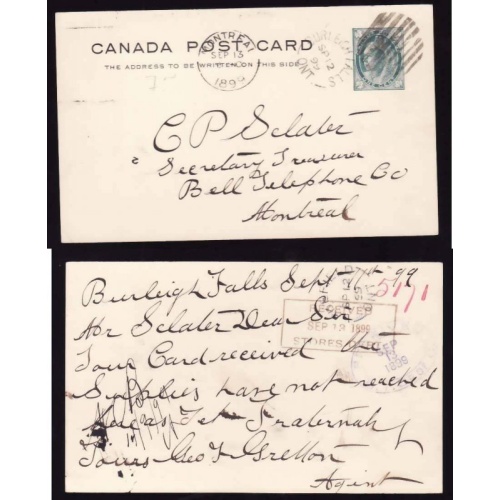 CANADA POST CARD
THE ADDRESS TO BE WRITTEN ON THIS SIDE
MONTREAL
SEP 13
1899
BURLEIGH FALLS
SP 12
99
ONT
C P Sclater
Secretary Treasurer
Bell Telephone Co
Montreal
Burleigh Falls Sept 99
5171
Mr Sclater Dear Sir
RECEIVED
SEP 13 1899
STORES DEPT.
Your Card received But
SEP
1899
Supplies have not reached
here as Yet Fraternally
Yours Geo Gretton
Agint